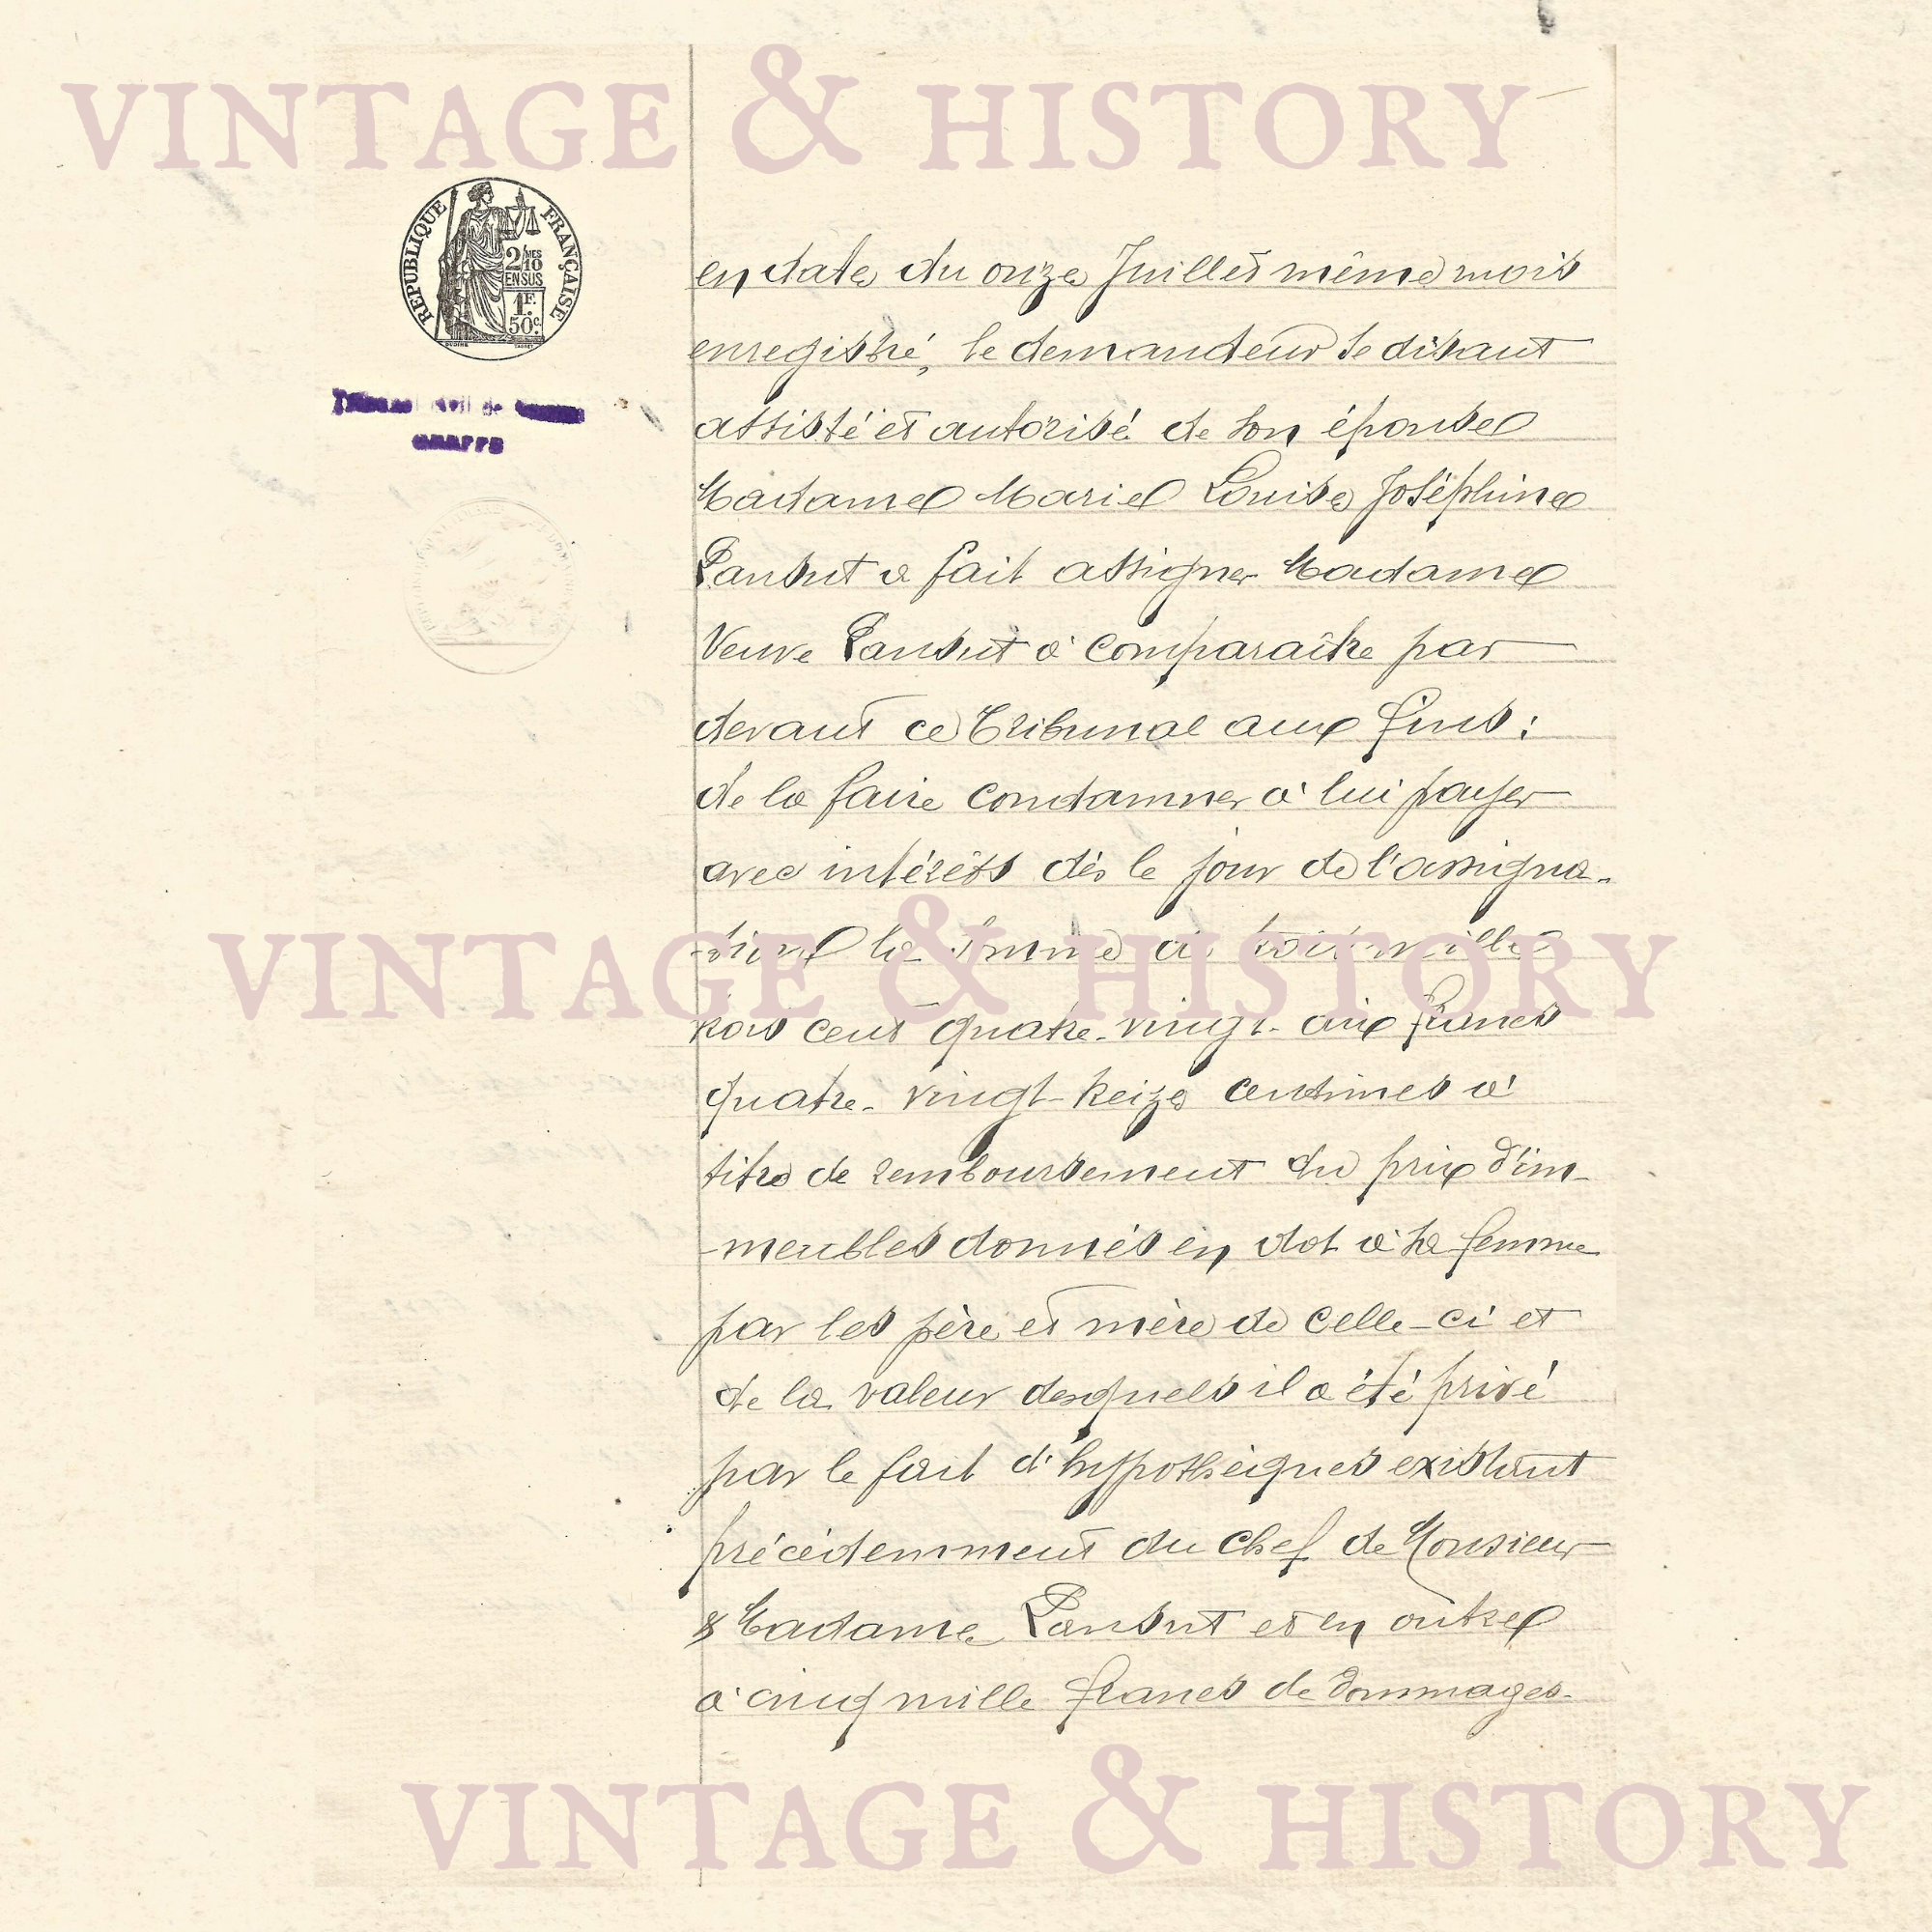 VINTAGE & HISTORY
REPUBLIQUE FRANÇAISE
2/10 MES
EN SUS
1 F.
50 c.
Tribunal civil de
GREFFE
en date du onze Juillet même mois
enregistré, le demandeur se disant
assisté et autorisé de son épouse
Madame Marie Louise Joséphine
Pansut a fait assigner Madame
Veuve Pansut à comparaître par
devant ce Tribunal aux fins :
de la faire condamner à lui payer
avec intérêts dès le jour de l'assigna-
-tion la somme de trois mille
VINTAGE & HISTORY
trois cent quatre-vingt-dix francs
quatre-vingt-treize centimes à
titre de remboursement du prix d'im-
-meubles donnés en dot à sa femme
par les père et mère de celle-ci et
de la valeur desquels il a été privé
par le fait d'hypothèques existant
précédemment du chef de Monsieur
& Madame Pansut et en outre
à cinq mille francs de dommages-
VINTAGE & HISTORY